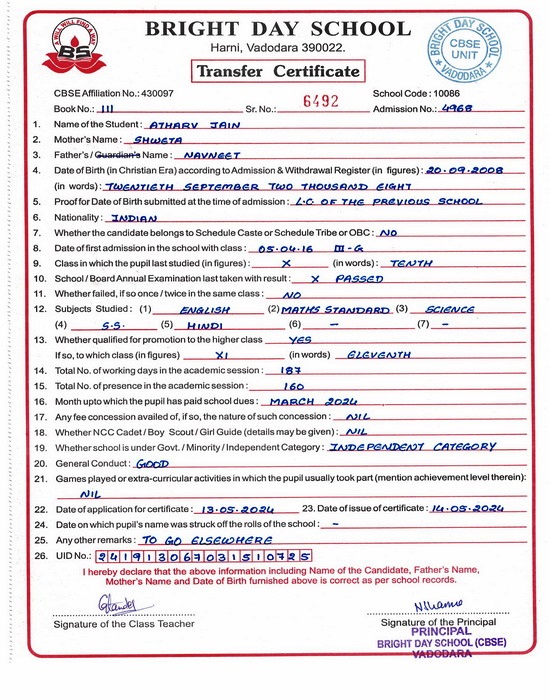 BRIGHT DAY SCHOOL
Harni, Vadodara 390022.
Transfer Certificate
WILL WILL FIND A WAY
BS
BRIGHT DAY SCHOOL
CBSE
UNIT
VADODARA
CBSE Affiliation No.: 430097 School Code : 10086
Book No.: III Sr. No.: 6492 Admission No.: 4968
1. Name of the Student : ATHARV JAIN
2. Mother's Name : SHWETA
3. Father's / Guardian's Name : NAVNEET
4. Date of Birth (in Christian Era) according to Admission & Withdrawal Register (in figures) : 20.09.2008
(in words) : TWENTIETH SEPTEMBER TWO THOUSAND EIGHT
5. Proof for Date of Birth submitted at the time of admission : L.C OF THE PREVIOUS SCHOOL
6. Nationality : INDIAN
7. Whether the candidate belongs to Schedule Caste or Schedule Tribe or OBC : NO
8. Date of first admission in the school with class : 05.04.16 III-G
9. Class in which the pupil last studied (in figures) : X (in words) : TENTH
10. School / Board Annual Examination last taken with result : X PASSED
11. Whether failed, if so once / twice in the same class : NO
12. Subjects Studied : (1) ENGLISH (2) MATHS STANDARD (3) SCIENCE
(4) S.S. (5) HINDI (6) – (7) –
13. Whether qualified for promotion to the higher class YES
If so, to which class (in figures) XI (in words) ELEVENTH
14. Total No. of working days in the academic session : 187
15. Total No. of presence in the academic session : 160
16. Month upto which the pupil has paid school dues : MARCH 2024
17. Any fee concession availed of, if so, the nature of such concession : NIL
18. Whether NCC Cadet / Boy Scout / Girl Guide (details may be given) : NIL
19. Whether school is under Govt. / Minority / Independent Category : INDEPENDENT CATEGORY
20. General Conduct : GOOD
21. Games played or extra-curricular activities in which the pupil usually took part (mention achievement level therein):
NIL
22. Date of application for certificate : 13.05.2024 23. Date of issue of certificate : 14.05.2024
24. Date on which pupil's name was struck off the rolls of the school : –
25. Any other remarks : TO GO ELSEWHERE
26. UID No. : 241913067031510725
I hereby declare that the above information including Name of the Candidate, Father's Name,
Mother's Name and Date of Birth furnished above is correct as per school records.
Signature of the Class Teacher Signature of the Principal
PRINCIPAL
BRIGHT DAY SCHOOL (CBSE)
VADODARA